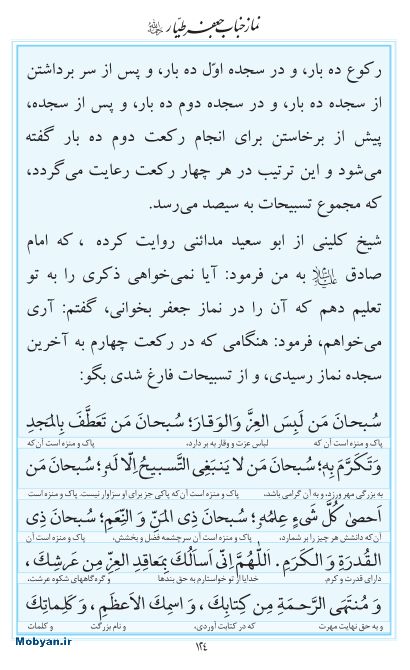 نماز جناب جعفر طیّار
رکوع ده بار، و در سجده اوّل ده بار، و پس از سر برداشتن
از سجده ده بار، و در سجده دوم ده بار، و پس از سجده،
پیش از برخاستن برای انجام رکعت دوم ده بار گفته
می‌شود و این ترتیب در هر چهار رکعت رعایت می‌گردد،
که مجموع تسبیحات به سیصد می‌رسد.
شیخ کلینی از ابو سعید مدائنی روایت کرده ، که امام
صادق علیه‌السلام به من فرمود: آیا نمی‌خواهی ذکری را به تو
تعلیم دهم که آن را در نماز جعفر بخوانی، گفتم: آری
می‌خواهم، فرمود: هنگامی که در رکعت چهارم به آخرین
سجده نماز رسیدی، و از تسبیحات فارغ شدی بگو:
سُبحانَ مَن لَبِسَ العِزَّ وَالوَقارَ؛ سُبحانَ مَن تَعَطَّفَ بِالمَجدِ
پاک و منزه است آن که لباس عزت و وقار به بر دارد، پاک و منزه است آن که
وَتَکَرَّمَ بِهِ؛ سُبحانَ مَن لا یَنبَغِی التَّسبیحُ اِلّا لَهُ؛ سُبحانَ مَن
به بزرگی مهر ورزد، و به آن گرامی باشد، پاک و منزه است آن که پاکی جز برای او سزاوار نیست. پاک و منزه است
اَحصیٰ کُلَّ شَیءٍ عِلمُهُ؛ سُبحانَ ذِی المَنِّ وَ النِّعَمِ؛ سُبحانَ ذِی
آن که دانشش هر چیز را بر شمارد، پاک و منزه است آن سرچشمه فضل و بخشش، پاک و منزه است آن
القُدرَةِ وَ الکَرَمِ. اَللّٰهُمَّ اِنّی اَسأَلُکَ بِمَعاقِدِ العِزِّ مِن عَرشِکَ ،
دارای قدرت و کرم. خدایا از تو خواستارم به حق بندها و گره‌گاههای شکوه عرشت،
وَ مُنتَهَی الرَّحمَةِ مِن کِتابِکَ ، وَ اسمِکَ الاَعظَمِ ، وَ کَلِماتِکَ
و به حق نهایت مهرت که در کتابت آوردی، و نام بزرگت و کلمات
۱۲۴
Mobyan.ir